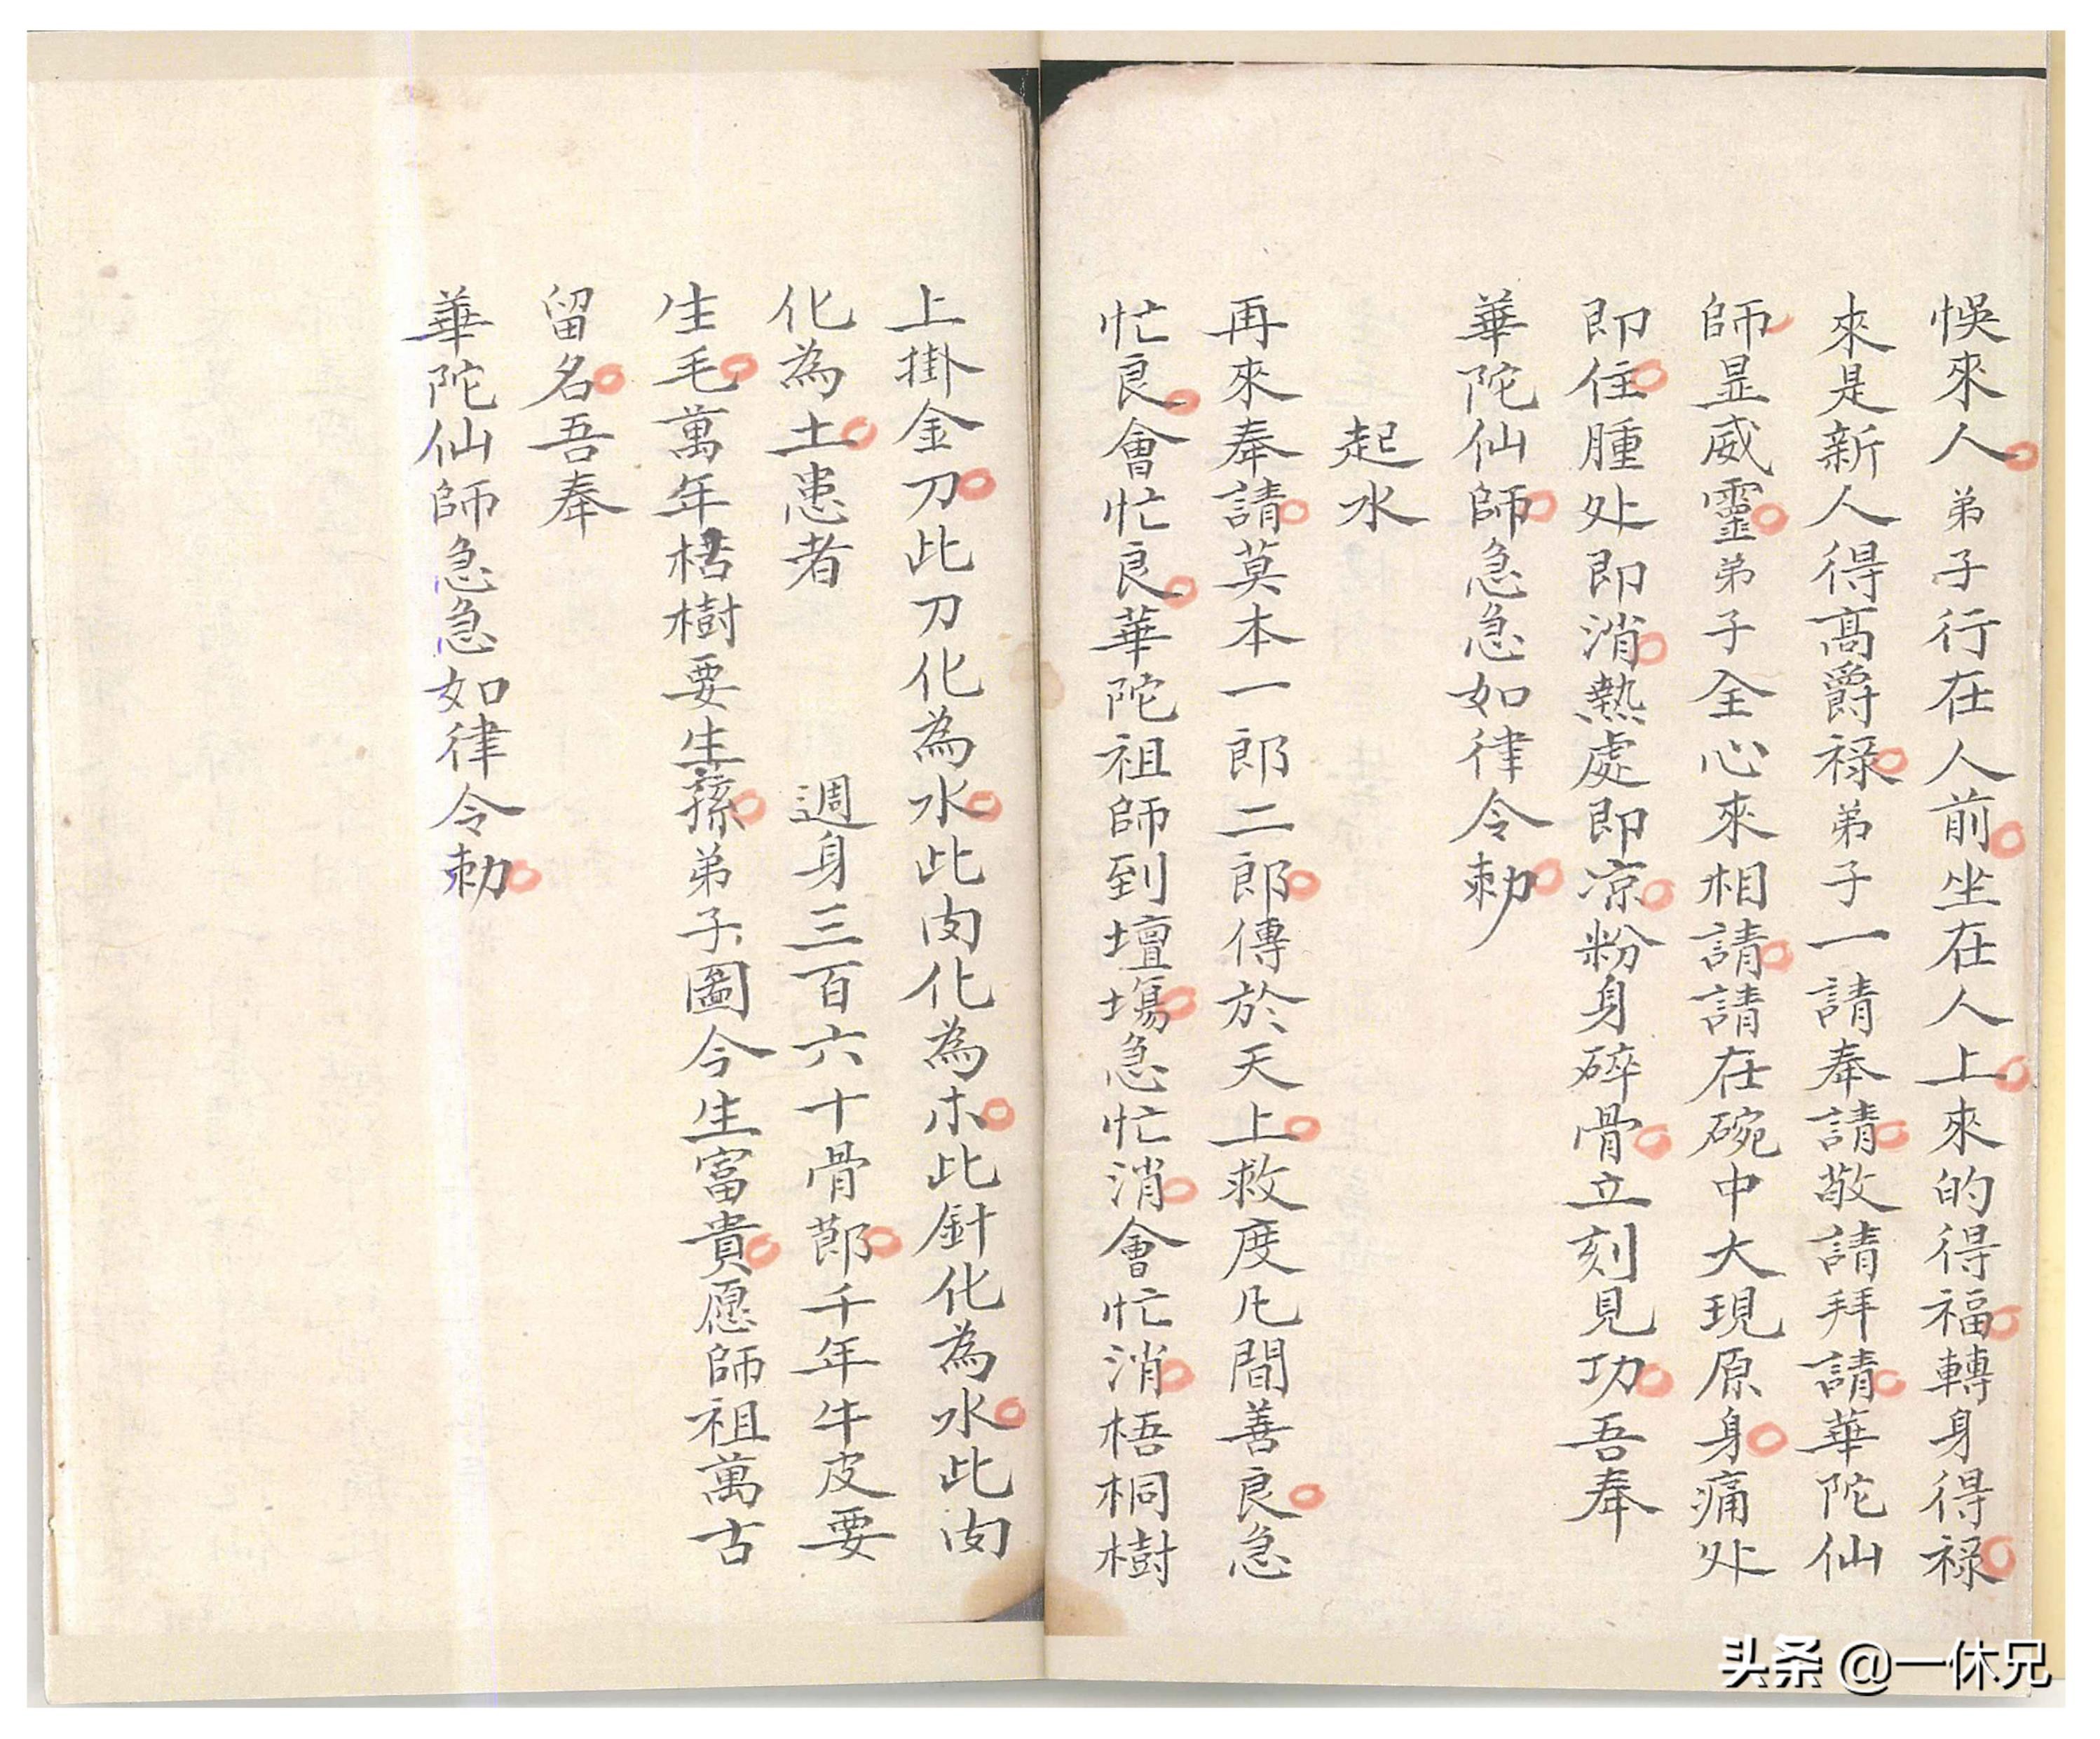 悞來人弟子行在人前坐在人上來的得福轉身得禄
來是新人得髙爵禄弟子一請奉請敬請拜請華陀仙
師显威靈弟子全心來相請請在碗中大現原身痛处
即住腫处即消熱處即凉粉身碎骨立刻見功吾奉
華陀仙師急急如律令勅
起水
再來奉請莫本一郎二郎傳於天上救度凡間善良急
忙良會忙良華陀祖師到壇塲急忙消會忙消梧桐樹
上掛金刀此刀化為水此肉化為木此針化為水此肉
化為土患者 週身三百六十骨節千年牛皮要
生毛萬年枯樹要生蓀弟子圖今生富貴愿師祖萬古
留名吾奉
華陀仙師急急如律令勅
头条 @一休兄